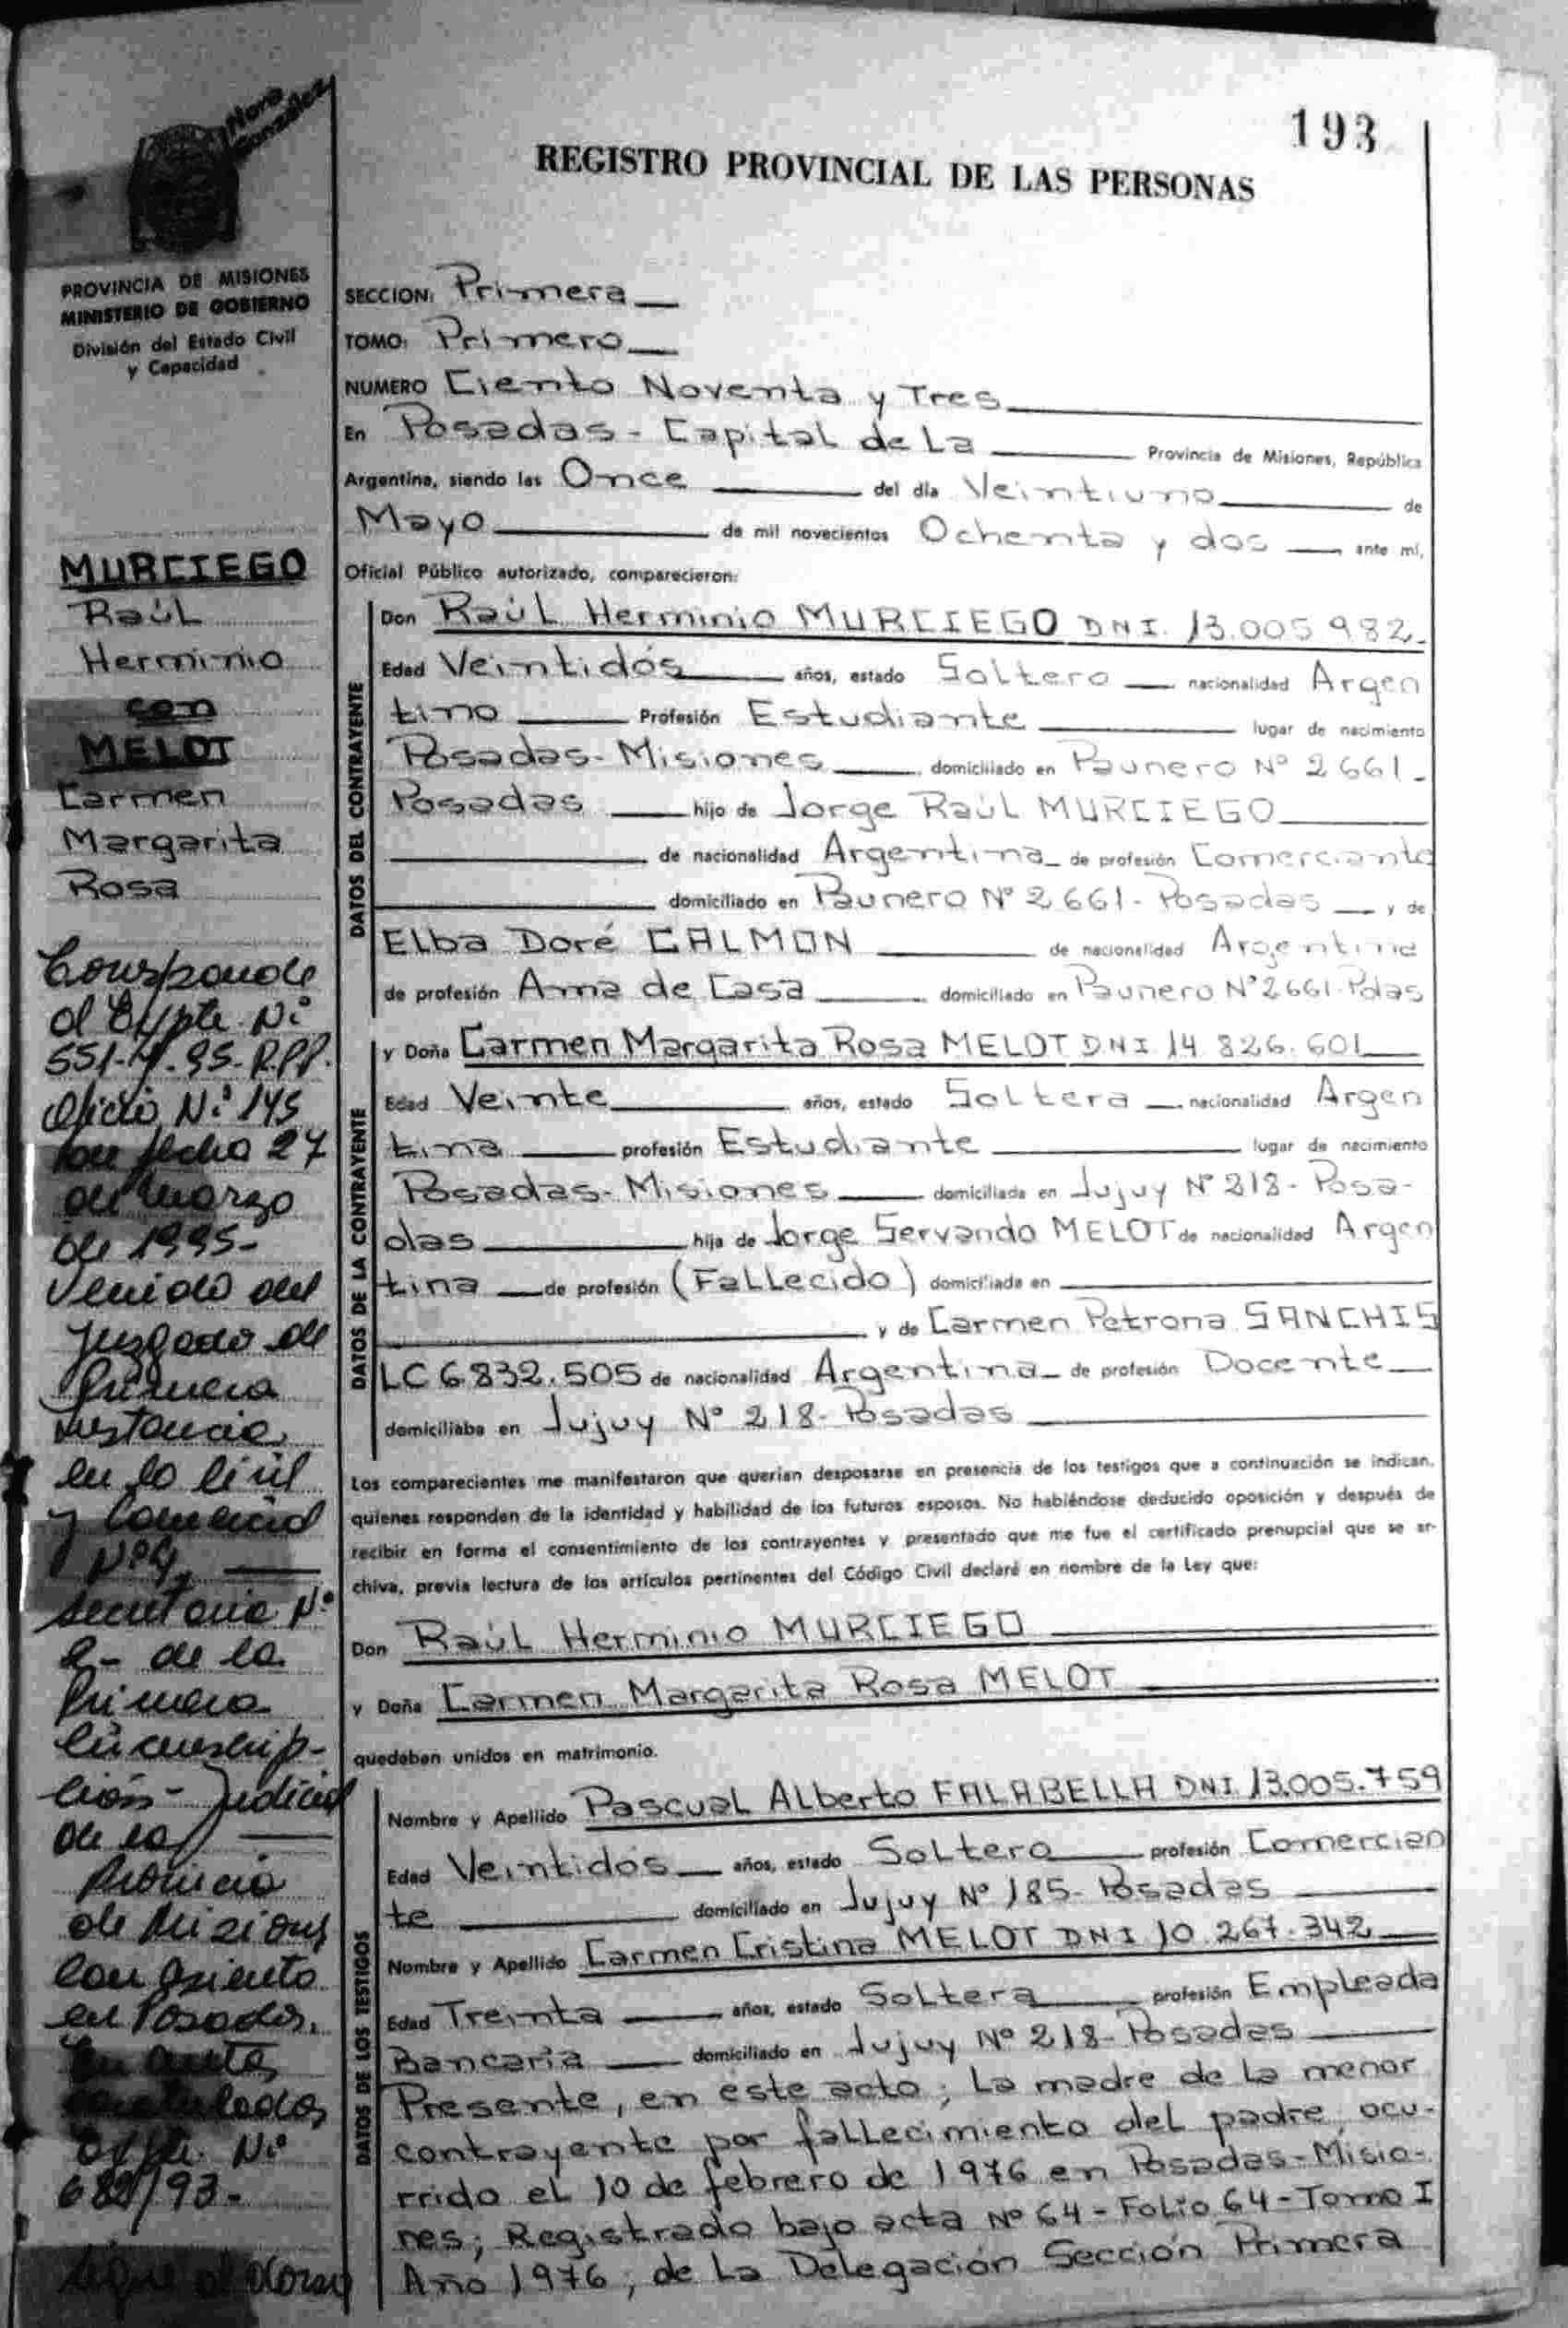 193
Nora González
REGISTRO PROVINCIAL DE LAS PERSONAS
PROVINCIA DE MISIONES
MINISTERIO DE GOBIERNO
División del Estado Civil
y Capacidad
MURCIEGO
Raúl
Herminio
con
MELOT
Carmen
Margarita
Rosa
Corresponde
al Expte. Nº
551-M-95-R.P.P.
Oficio Nº 145
con fecha 27
de Marzo
de 1995-
venido del
Juzgado de
Primera
Instancia
en lo Civil
y Comercial
Nº 4,
Secretaria Nº
2- de la
Primera
Circunscrip-
ción- Judicial
de la
Provincia
de Misiones
con asiento
en Posadas.
En autos
Expte. Nº
/93-
Sigue al dorso
SECCION: Primera
TOMO: Primero
NUMERO Ciento Noventa y Tres
En Posadas - Capital de La Provincia de Misiones, República
Argentina, siendo las Once del día Veintiuno de
Mayo de mil novecientos Ochenta y dos ante mí,
Oficial Público autorizado, comparecieron:
DATOS DEL CONTRAYENTE
Don Raúl Herminio MURCIEGO DNI. 13.005.982.
Edad Veintidós años, estado Soltero nacionalidad Argen
tino Profesión Estudiante lugar de nacimiento
Posadas- Misiones domiciliado en Paunero Nº 2661-
Posadas hijo de Jorge Raúl MURCIEGO
de nacionalidad Argentina de profesión Comerciante
domiciliado en Paunero Nº 2661- Posadas y de
Elba Doré GALMON de nacionalidad Argentina
de profesión Ama de Casa domiciliado en Paunero Nº 2661-Pdas
DATOS DE LA CONTRAYENTE
y Doña Carmen Margarita Rosa MELOT DNI 14.826.601
Edad Veinte años, estado Soltera nacionalidad Argen
tina profesión Estudiante lugar de nacimiento
Posadas- Misiones domiciliada en Jujuy Nº 218- Posa-
das hija de Jorge Servando MELOT de nacionalidad Argen
tina de profesión (Fallecido) domiciliado en
y de Carmen Petrona SANCHIS
LC 6.832.505 de nacionalidad Argentina de profesión Docente
domiciliaba en Jujuy Nº 218- Posadas
Los comparecientes me manifestaron que querían desposarse en presencia de los testigos que a continuación se indican,
quienes responden de la identidad y habilidad de los futuros esposos. No habiéndose deducido oposición y después de
recibir en forma el consentimiento de los contrayentes y presentado que me fue el certificado prenupcial que se ar-
chiva, previa lectura de los artículos pertinentes del Código Civil declaré en nombre de la Ley que:
Don Raúl Herminio MURCIEGO
y Doña Carmen Margarita Rosa MELOT
quedaban unidos en matrimonio.
DATOS DE LOS TESTIGOS
Nombre y Apellido Pascual Alberto FALABELLA DNI 13.005.759
Edad Veintidós años, estado Soltero profesión Comercian
te domiciliado en Jujuy Nº 185- Posadas
Nombre y Apellido Carmen Cristina MELOT DNI 10.267.342
Edad Treinta años, estado Soltera profesión Empleada
Bancaria domiciliado en Jujuy Nº 218- Posadas
Presente, en este acto; La madre de la menor
contrayente por fallecimiento del padre, ocu-
rrido el 10 de febrero de 1976 en Posadas-Misio-
nes; Registrado bajo acta Nº 64 - Folio 64 - Tomo I
Año 1976, de La Delegación Sección Primera